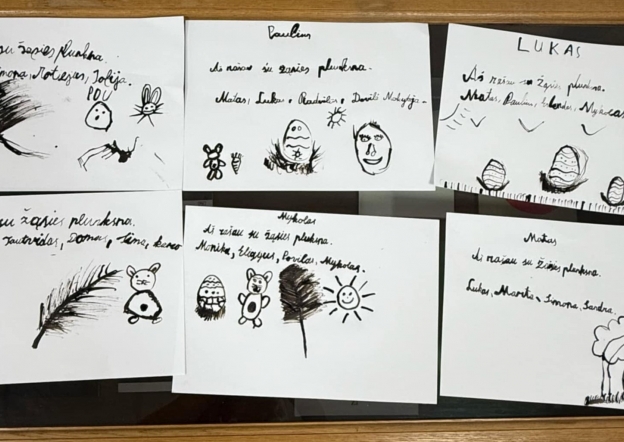 su žąsies plunksna.
Simona, Motiejus, Sofija.
POV
Paulius
Aš rašau su žąsies plunksna.
Matas, Lukas, Radvilas, Dovilė Motiejus
LUKAS
Aš rašau su žąsies plunksna.
Matas, Paulius, Mykolas
su žąsies plunksna.
Tautvidas, Domas,
Mykolas
Aš rašau su žąsies plunksna.
Monika, Eligijus, Povilas, Mykolas.
Matas
Aš rašau su žąsies plunksna.
Lukas, Marika, Simona, Sandra,